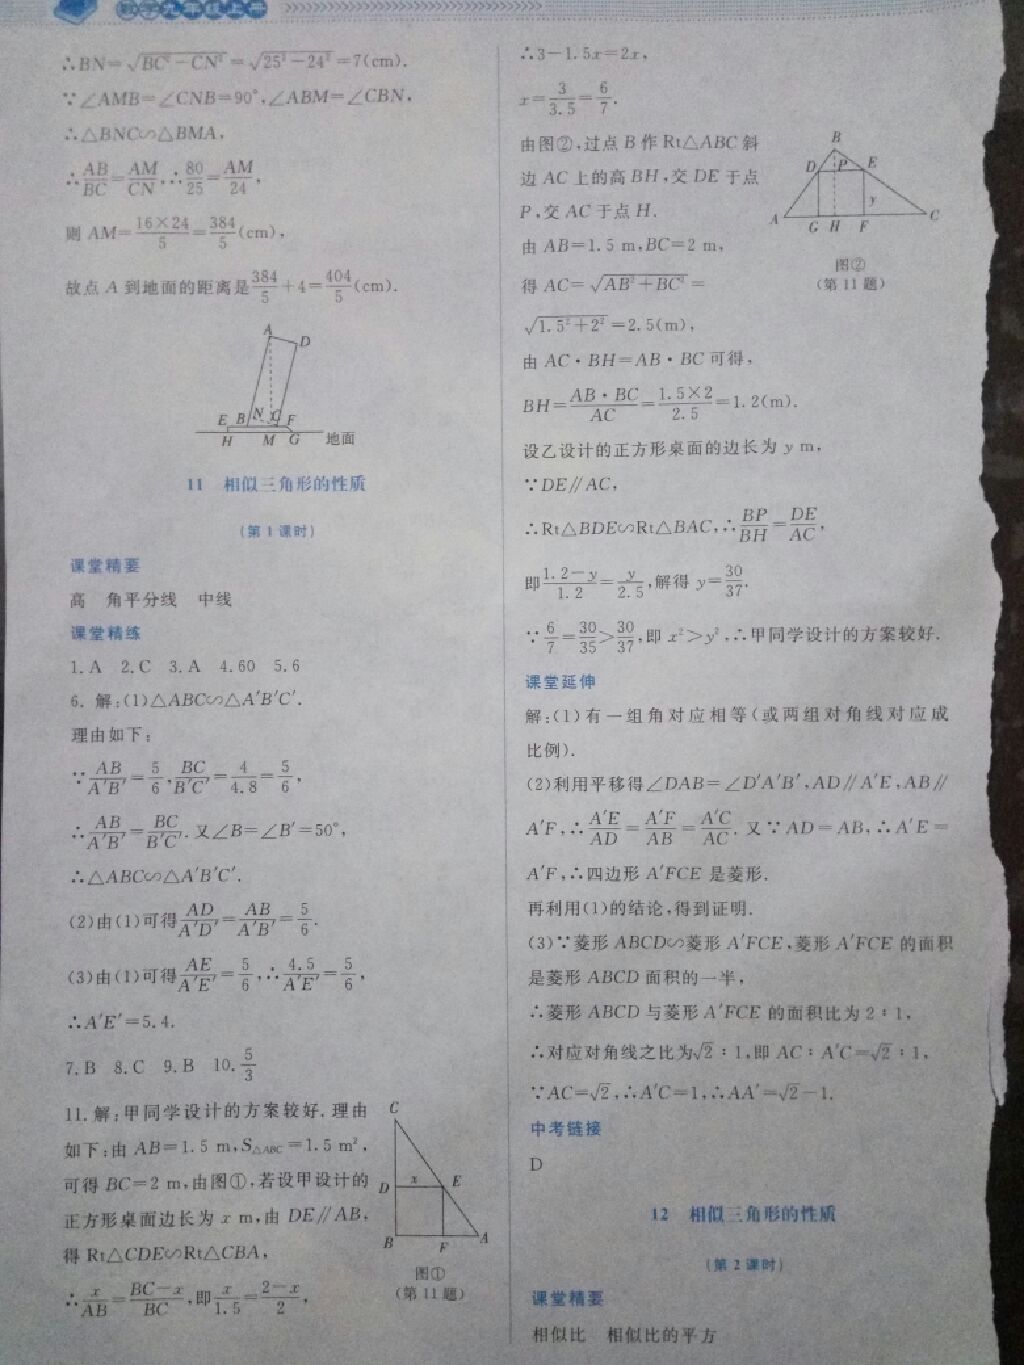 数学九年级上册
∴BN=√(BC²-CN²)=√(25²-24²)=7(cm).
∵∠AMB=∠CNB=90°,∠ABM=∠CBN,
∴△BNC∽△BMA,
∴AB/BC=AM/CN,∴80/25=AM/24,
则 AM=16×24/5=384/5(cm),
故点 A 到地面的距离是384/5+4=404/5(cm).
A
D
E B N C F
H M G 地面
11 相似三角形的性质
(第 1 课时)
课堂精要
高 角平分线 中线
课堂精练
1. A 2. C 3. A 4. 60 5. 6
6. 解:(1)△ABC∽△A′B′C′.
理由如下:
∵AB/A′B′=5/6,BC/B′C′=4/4.8=5/6,
∴AB/A′B′=BC/B′C′.又∠B=∠B′=50°,
∴△ABC∽△A′B′C′.
(2)由(1)可得AD/A′D′=AB/A′B′=5/6.
(3)由(1)可得AE/A′E′=5/6,∴4.5/A′E′=5/6,
∴A′E′=5.4.
7. B 8. C 9. B 10. 5/3
11. 解:甲同学设计的方案较好.理由
如下:由 AB=1.5 m,S△ABC=1.5 m²,
可得 BC=2 m,由图①,若设甲设计的
正方形桌面边长为 x m,由 DE∥AB,
得 Rt△CDE∽Rt△CBA,
∴x/AB=(BC-x)/BC,即x/1.5=(2-x)/2,
C
D x E
B F A
图①
(第 11 题)
∴3-1.5x=2x,
x=3/3.5=6/7.
由图②,过点 B 作 Rt△ABC 斜
边 AC 上的高 BH,交 DE 于点
P,交 AC 于点 H.
由 AB=1.5 m,BC=2 m,
得 AC=√(AB²+BC²)=
√(1.5²+2²)=2.5(m),
B
D P E
y
A G H F C
图②
(第 11 题)
由 AC·BH=AB·BC 可得,
BH=AB·BC/AC=1.5×2/2.5=1.2(m).
设乙设计的正方形桌面的边长为 y m,
∵DE∥AC,
∴Rt△BDE∽Rt△BAC,∴BP/BH=DE/AC,
即(1.2-y)/1.2=y/2.5,解得 y=30/37.
∵6/7=30/35>30/37,即 x²>y²,∴甲同学设计的方案较好.
课堂延伸
解:(1)有一组角对应相等(或两组对角线对应成
比例).
(2)利用平移得∠DAB=∠D′A′B′,AD∥A′E,AB∥
A′F,∴A′E/AD=A′F/AB=A′C/AC.又∵AD=AB,∴A′E=
A′F,∴四边形 A′FCE 是菱形.
再利用(1)的结论,得到证明.
(3)∵菱形 ABCD∽菱形 A′FCE,菱形 A′FCE 的面积
是菱形 ABCD 面积的一半,
∴菱形 ABCD 与菱形 A′FCE 的面积比为 2∶1,
∴对应对角线之比为√2∶1,即 AC∶A′C=√2∶1,
∵AC=√2,∴A′C=1,∴AA′=√2-1.
中考链接
D
12 相似三角形的性质
(第 2 课时)
课堂精要
相似比 相似比的平方